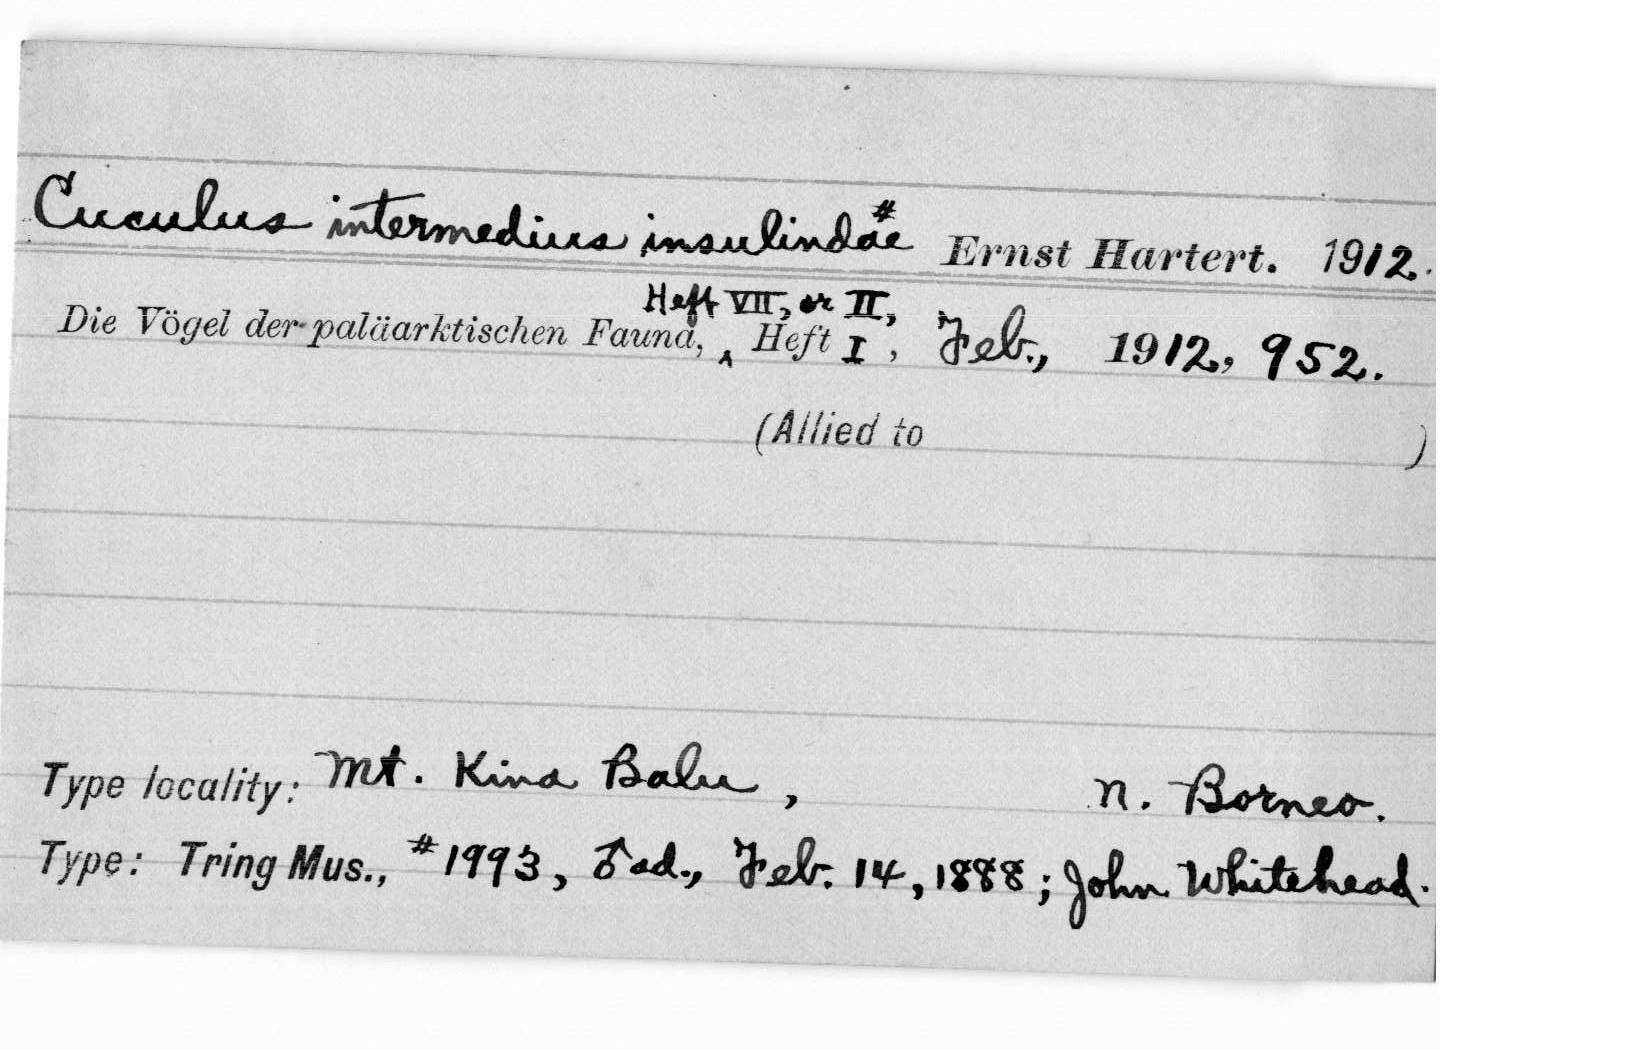 Cuculus intermedius insulindae # Ernst Hartert. 1912.
Heft VII, or II,
Die Vögel der paläarktischen Fauna, ^ Heft I, Feb., 1912, 952.
(Allied to )
Type locality: Mt. Kina Balu, N. Borneo.
Type: Tring Mus., #1993, ♂ ad., Feb. 14, 1888; John Whitehead.